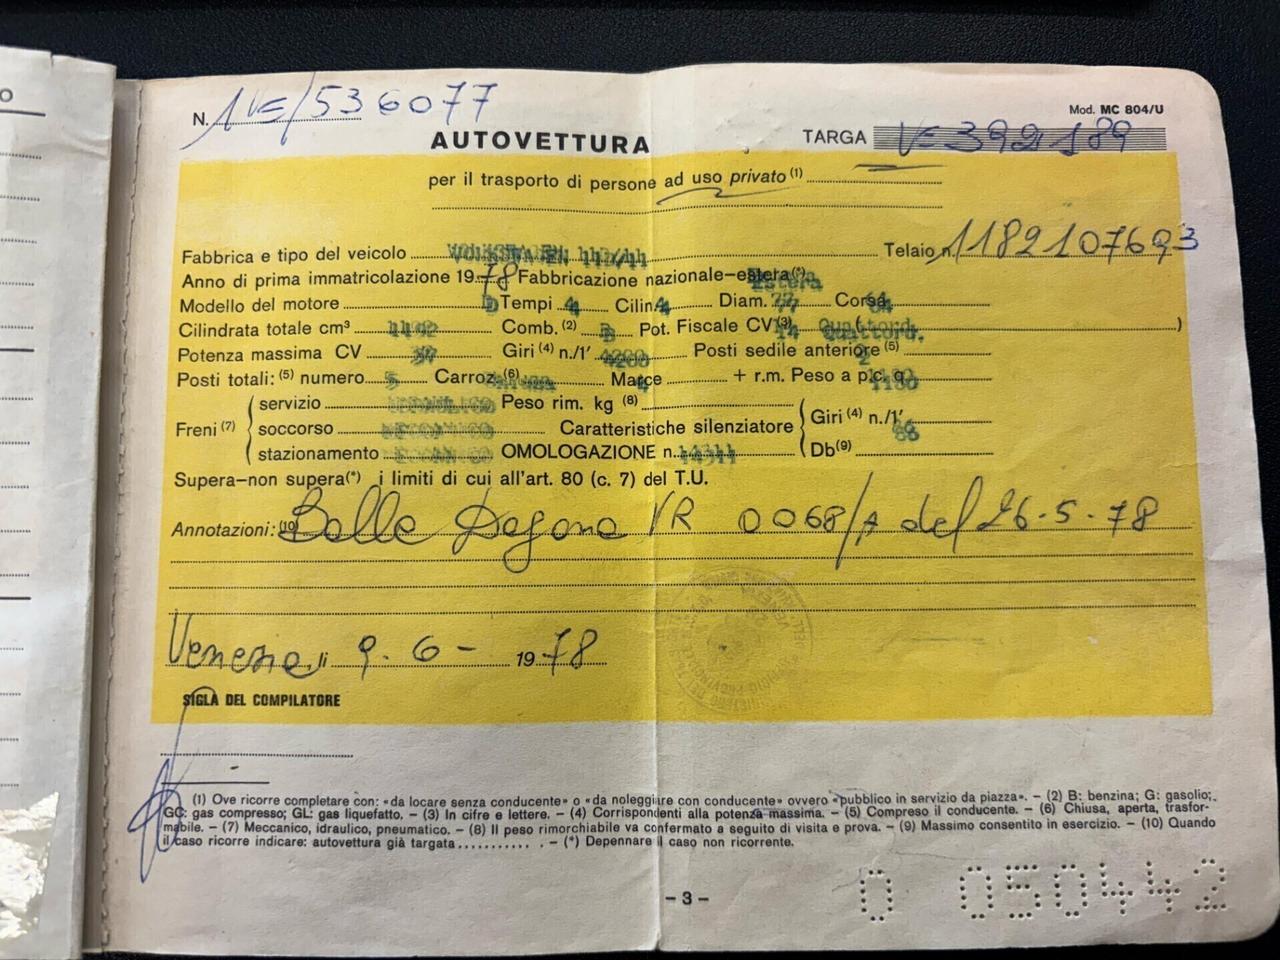 O
N. 1VE/536077
Mod. MC 804/U
AUTOVETTURA
TARGA VE 392189
per il trasporto di persone ad uso privato (1)
Fabbrica e tipo del veicolo VOLKSWAGEN 113/11 Telaio n. 1182107693
Anno di prima immatricolazione 1978 Fabbricazione nazionale-estera(*) Estera
Modello del motore D Tempi 4 Cilin. 4 Diam. 77 Corsa 64
Cilindrata totale cm³ 1192 Comb.(2) B Pot. Fiscale CV(3) 14 Quattord. )
Potenza massima CV Giri (4) n./1' 4200 Posti sedile anteriore (5) 2
Posti totali: (5) numero 5 Carroz.(6) Marce 4 + r.m. Peso a p.c. q.
Freni (7)
servizio Peso rim. kg (8)
soccorso Caratteristiche silenziatore Giri (4) n./1'
stazionamento OMOLOGAZIONE n. 14311 Db(9) 86
Supera-non supera(*) i limiti di cui all'art. 80 (c. 7) del T.U.
Annotazioni: (10) Bolle Dogana VR 0068/A del 26.5.78
Venezia, lì 9.6- 1978
SIGLA DEL COMPILATORE
(1) Ove ricorre completare con: «da locare senza conducente» o «da noleggiare con conducente» ovvero «pubblico in servizio da piazza». – (2) B: benzina; G: gasolio;
GC: gas compresso; GL: gas liquefatto. – (3) In cifre e lettere. – (4) Corrispondenti alla potenza massima. – (5) Compreso il conducente. – (6) Chiusa, aperta, trasfor-
mabile. – (7) Meccanico, idraulico, pneumatico. – (8) Il peso rimorchiabile va confermato a seguito di visita e prova. – (9) Massimo consentito in esercizio. – (10) Quando
il caso ricorre indicare: autovettura già targata ........... . – (*) Depennare il caso non ricorrente.
– 3 –
0 050442